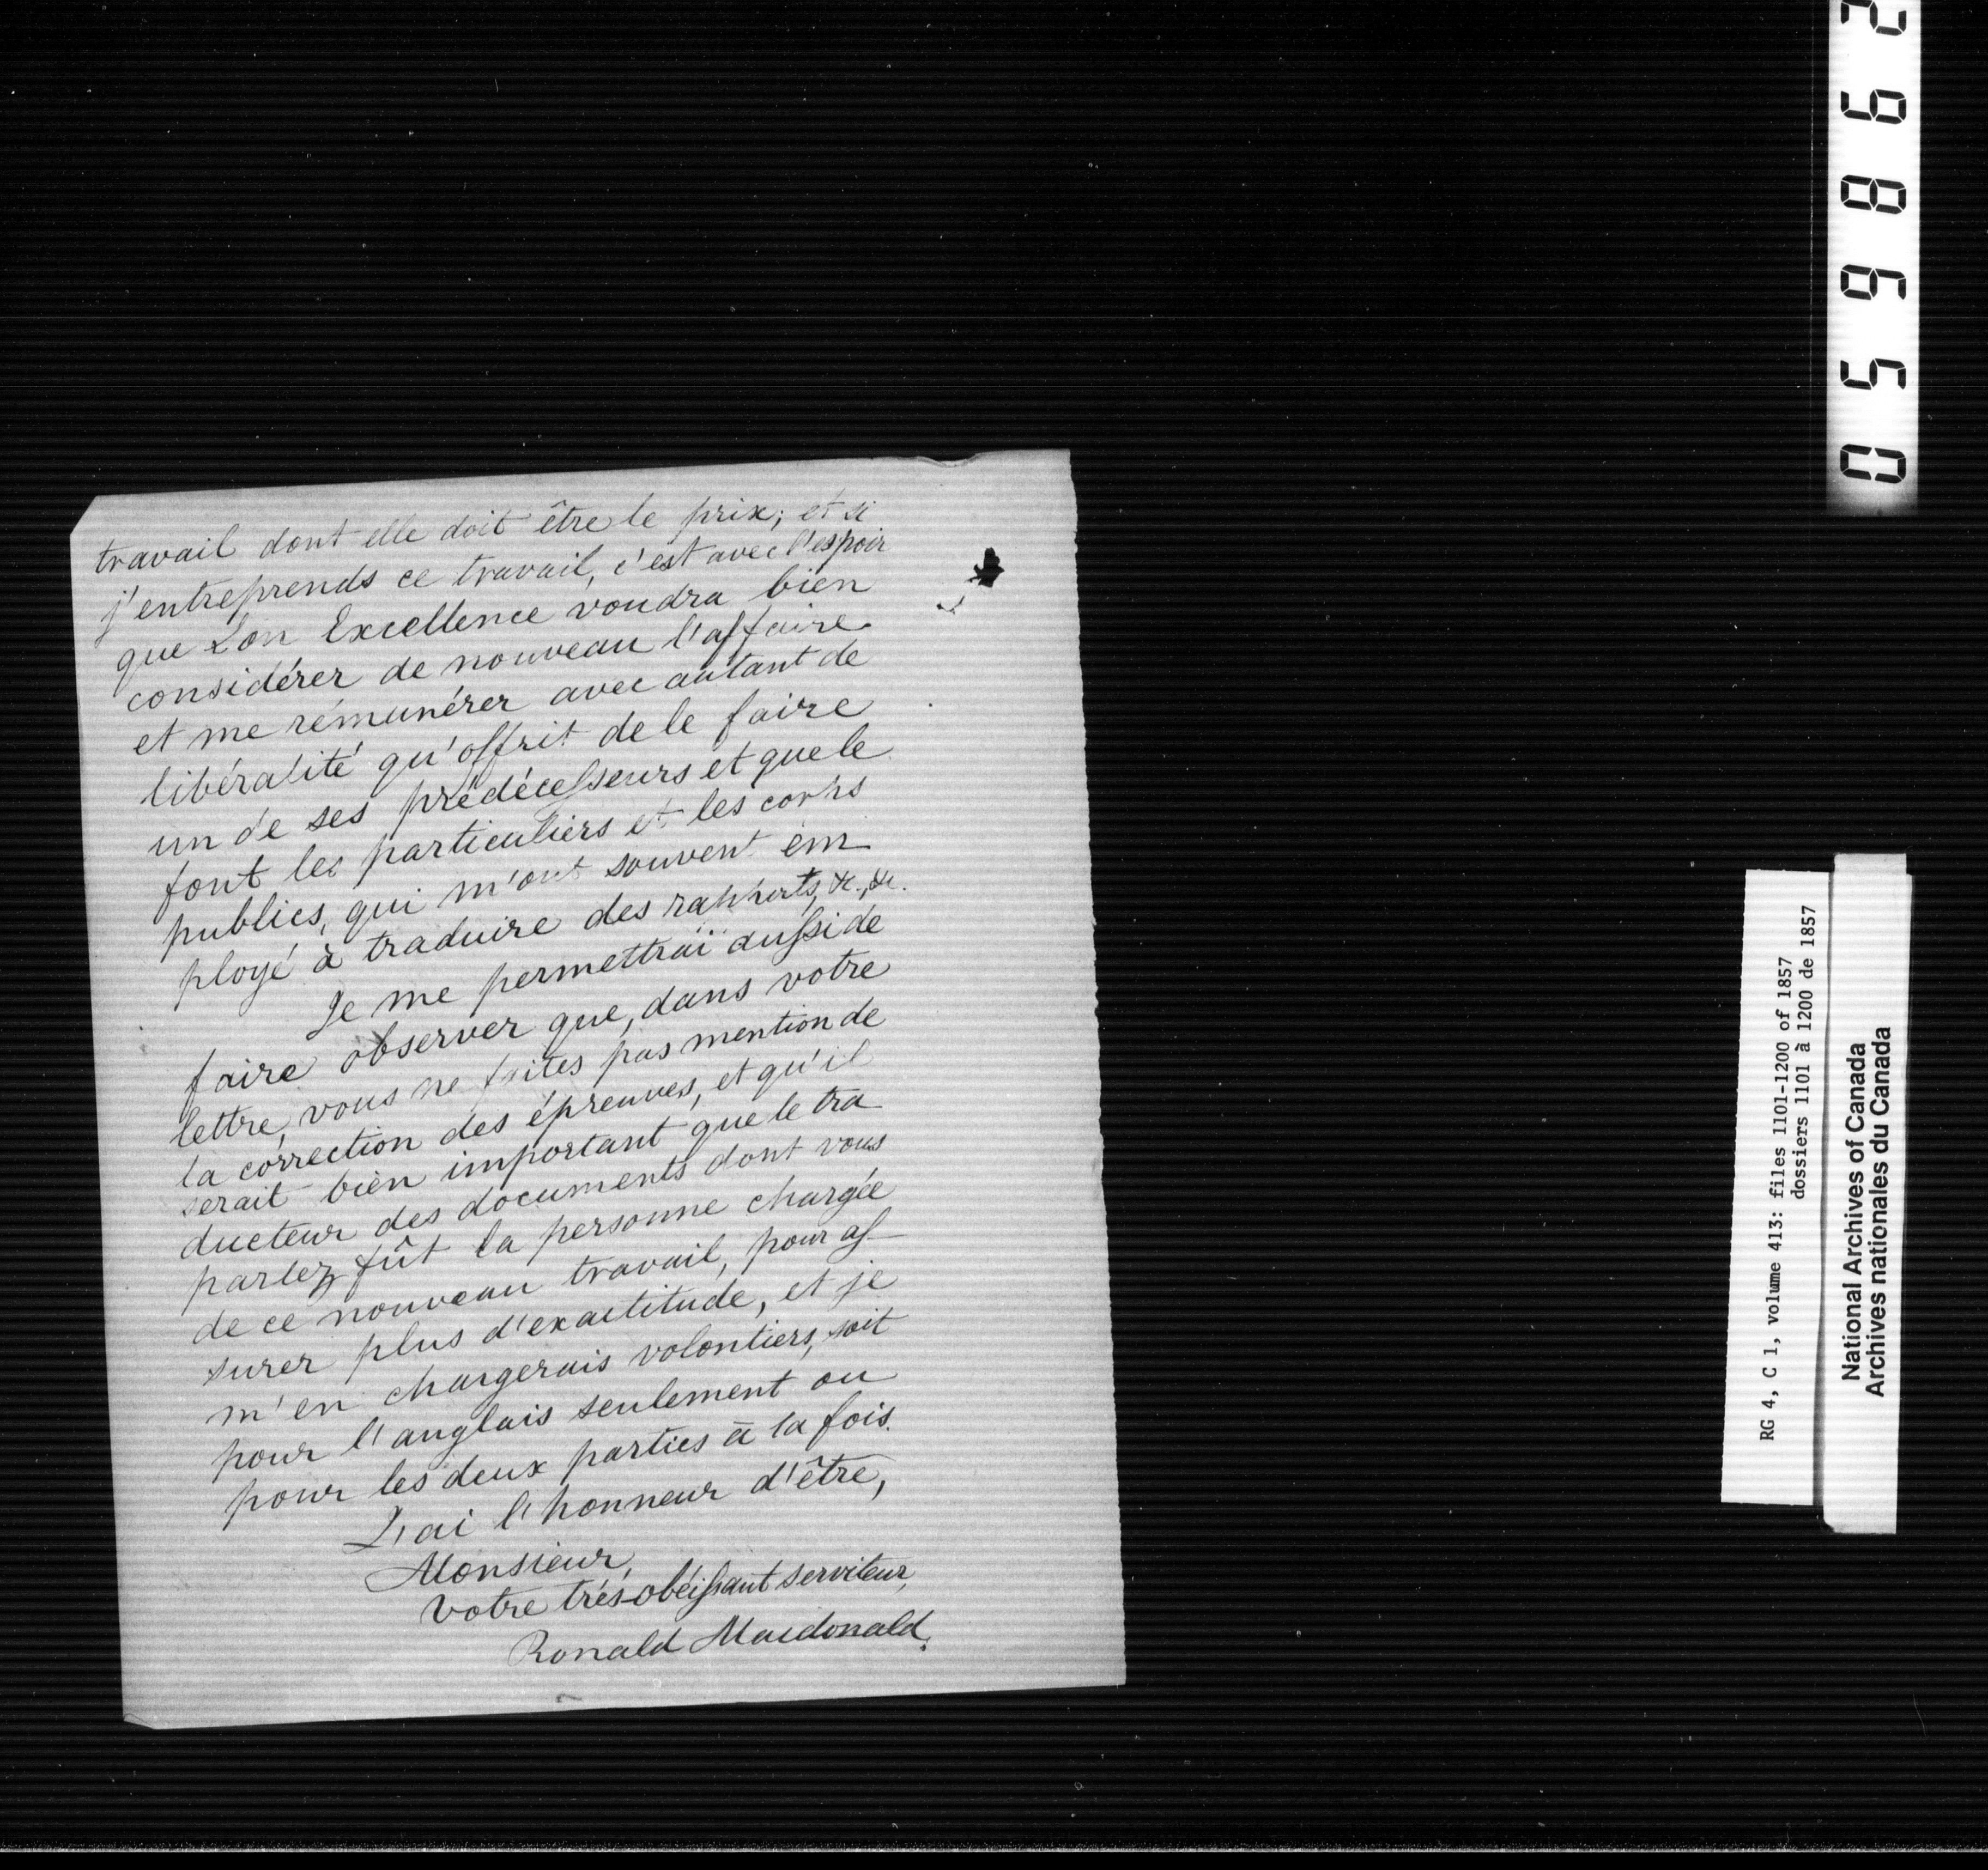 travail dont elle doit être le prix; et si
j'entreprends ce travail, c'est avec l'espoir
que Son Excellence voudra bien
considérer de nouveau l'affaire
et me rémunérer avec autant de
libéralité qu'offrit de le faire
un de ses prédécesseurs et que le
font les particuliers et les corps
publics, qui m'ont souvent em
ployé à traduire des rapports, &c., &c.
Je me permettrai aussi de
faire observer que, dans votre
lettre, vous ne faites pas mention de
la correction des épreuves, et qu'il
serait bien important que le tra
ducteur des documents dont vous
parlez fût la personne chargée
de ce nouveau travail, pour as-
surer plus d'exactitude, et je
m'en chargerais volontiers, soit
pour l'anglais seulement ou
pour les deux parties à la fois.
J'ai l'honneur d'être,
Monsieur,
votre très-obéissant serviteur,
Ronald Macdonald.
059862
RG 4, C 1, volume 413: files 1101-1200 of 1857
dossiers 1101 à 1200 de 1857
National Archives of Canada
Archives nationales du Canada